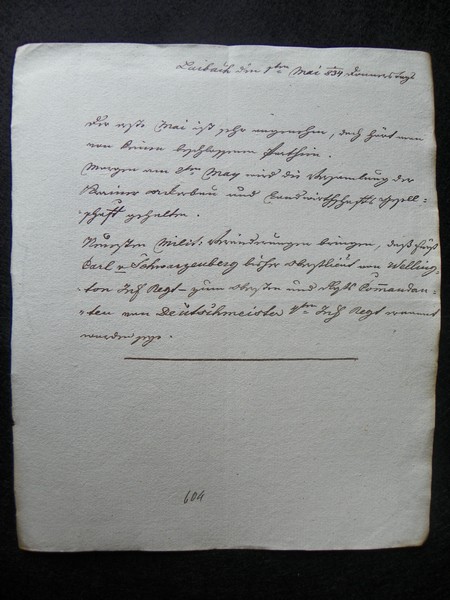 Laibach den 1ten Mai 834 Donnerstags
Der erste Mai ist sehr angenehm, doch hört man
von keiner beschlossenen Parthie.
Morgen am 2ten May wird die Versamlung der
Krainer Akerbau und Landwirthschafts Gesell-
schaft gehalten.
Neuesten Milit: Veränderungen bringen, daß Fürst
Carl v Schwarzenberg bisher Obristlieut von Welling-
ton Inf Regt zum Obersten und Rgts Comandan-
ten von Deutschmeister 4ten Inf Regt ernannt
worden seye.
604